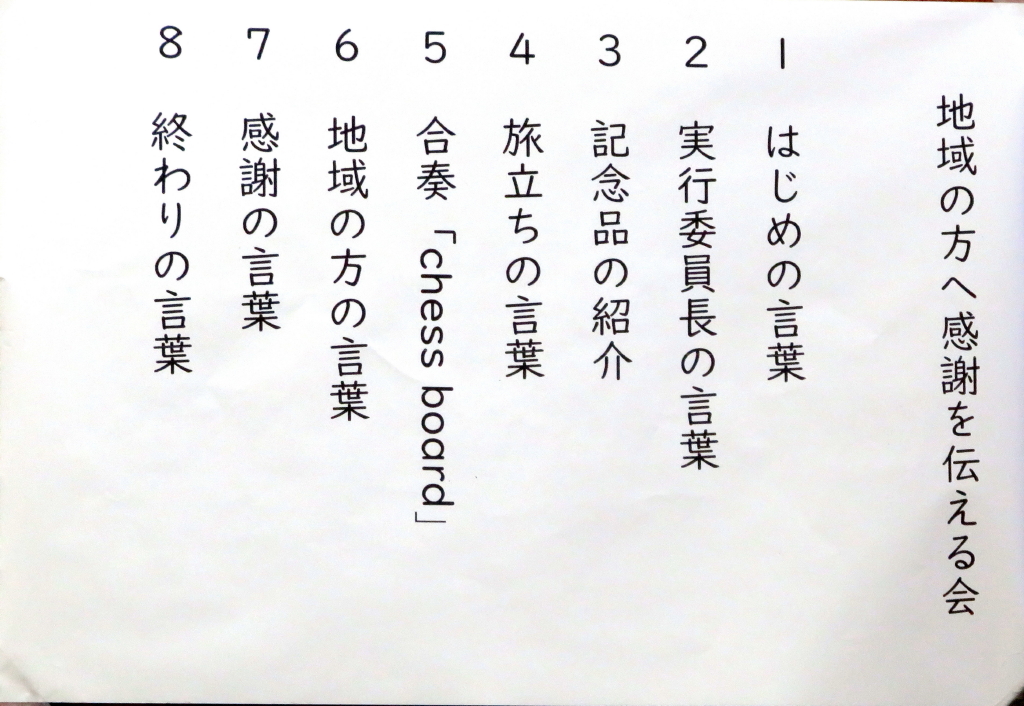 地域の方へ感謝を伝える会
1 はじめの言葉
2 実行委員長の言葉
3 記念品の紹介
4 旅立ちの言葉
5 合奏「chess board」
6 地域の方の言葉
7 感謝の言葉
8 終わりの言葉